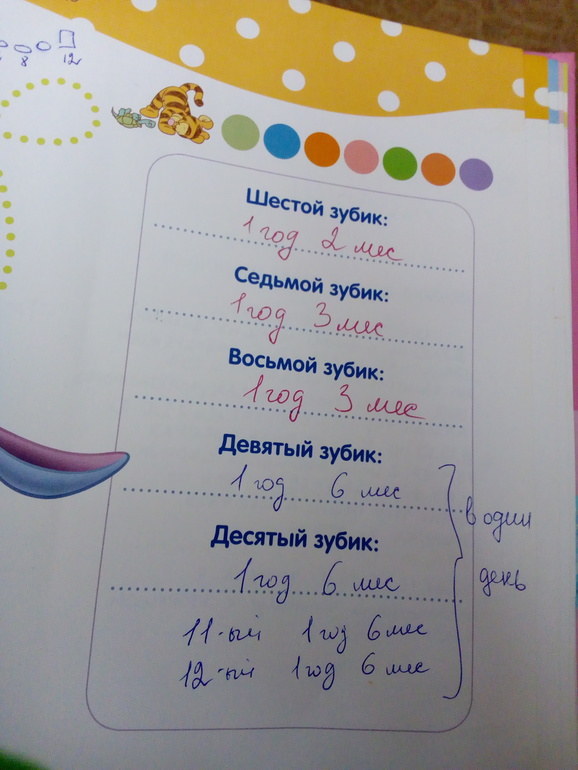 8 12
Шестой зубик:
1 год 2 мес
Седьмой зубик:
1 год 3 мес
Восьмой зубик:
1 год 3 мес
Девятый зубик:
1 год 6 мес
в один
Десятый зубик:
день
1 год 6 мес
11-ый 1 год 6 мес
12-ый 1 год 6 мес